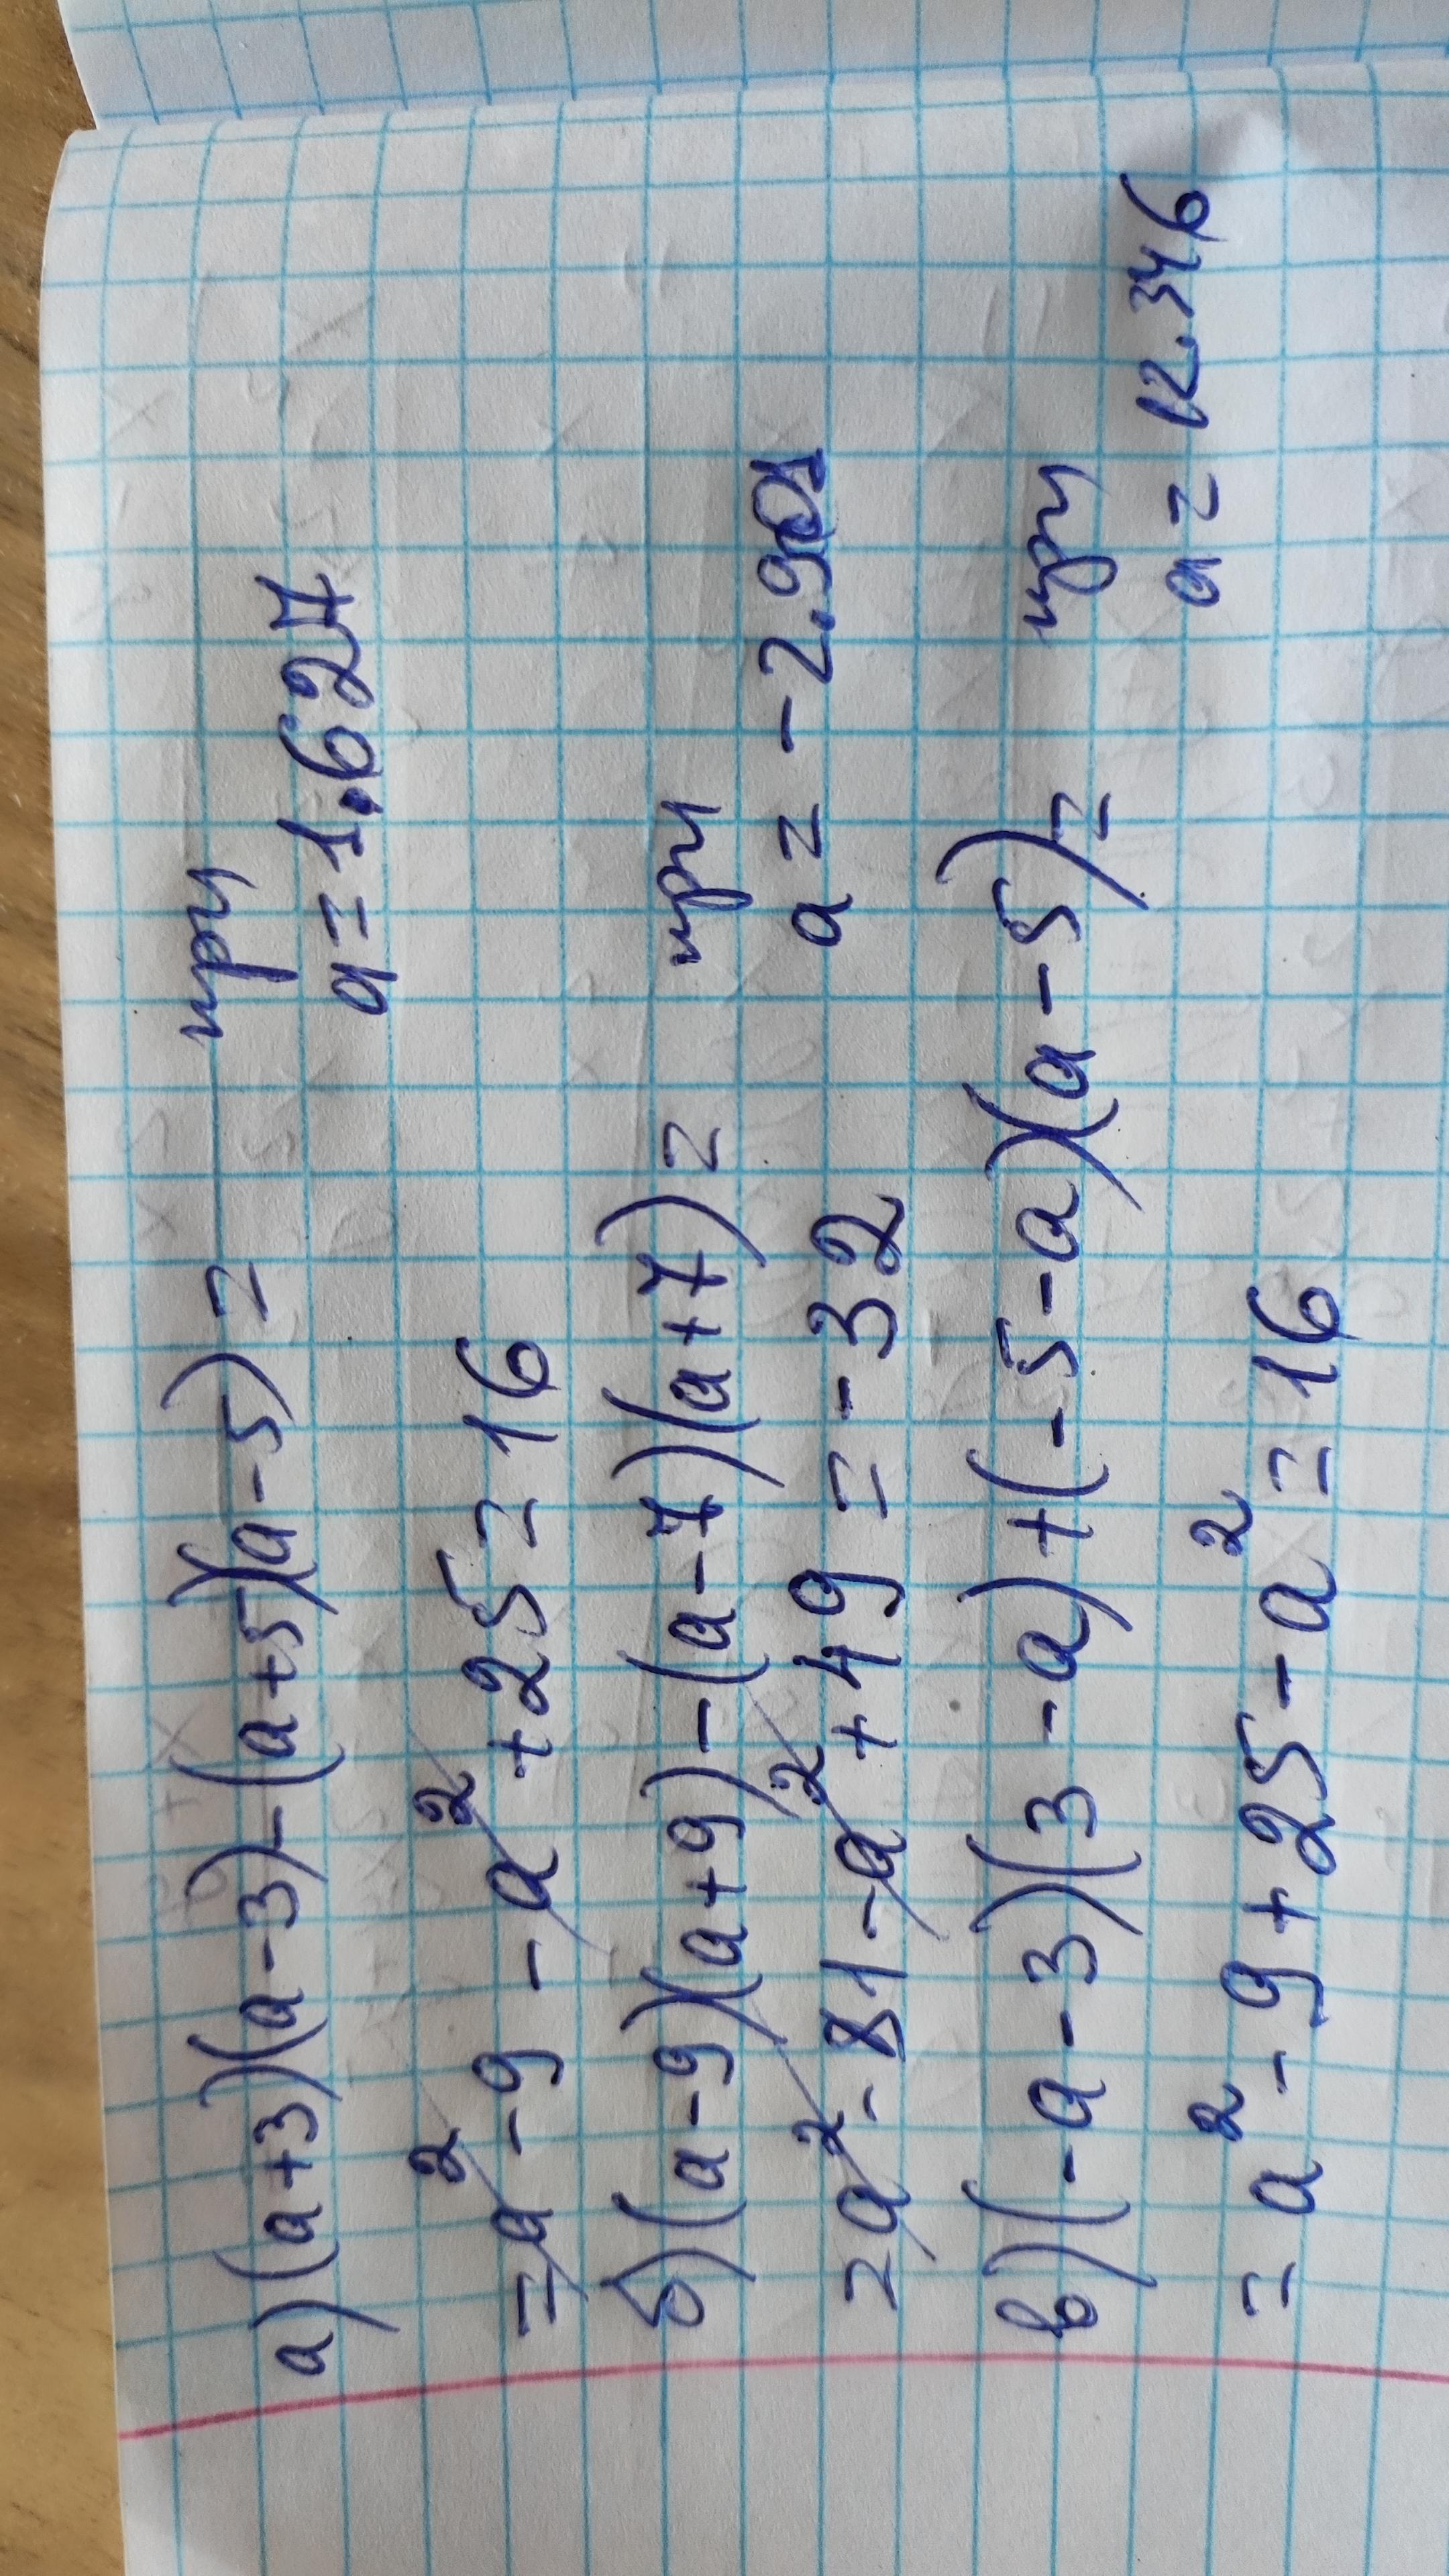 а) (a+3)(a-3)-(a+5)(a-5)= при
a=1.627
=a²-9-a²+25=16
б) (a-9)(a+9)-(a-7)(a+7)= при
a=-2.901
=a²-81-a²+49=-32
в) (-a-3)(3-a)+(-5-a)(a-5)= при
a=12.346
=a²-9+25-a²=16